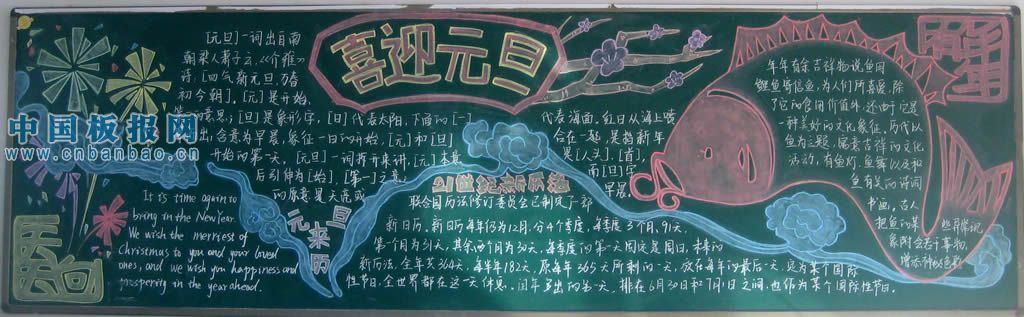 喜迎元旦
[元旦]一词出自南
朝梁人萧子云《介雅》
诗:[四气新元旦,万春
初今朝]。[元]是开始,
意思;[旦]是象形字,[日]代表太阳,下面的[一]
代表海面,红日从海上喷
出,含意为早晨,象征一日的开始。[元]和[旦]
合在一起,是指新年
开始的第一天。[元旦]一词拆开来讲,[元]本意
是[人头],[首],
后引伸为[始]、[第一]之意,
而[旦]字
的原意是天亮或
早晨。
元旦
来历
中国板报网
www.cnbanbao.cn
It is time again to
bring in the New Year.
We wish the merriest of
Christmas to you and your loved
ones, and we wish you happiness and
prosperity in the year ahead.
21世纪新历法
联合国历法修订委员会已制定了一部
新日历。新日历每年仍为12月,分4个季度,每季度3个月,91天,
第一个月为31天,其余两个月为30天,每季度的第一天固定是周日。未来的
新历法,全年共364天,每半年182天,原每年365天所剩的一天,放在每年的最后一天,定为某个国际
性节日,全世界都在这一天休息。闰年多出的第一天,排在6月30日和7月1日之间,也作为某个国际性节日。
年年有余吉祥物说鱼用
鲤鱼等佳鱼,为人们所喜爱,除
了它的食用价值外,还由于它是
一种美好的文化象征。历代以
鱼为主题,富意吉祥的文化
活动,有鱼灯、鱼舞以及和
鱼有关的诗词
书画,古人
把鱼的某
些异常现
象附会若干事物,
增添神秘色彩